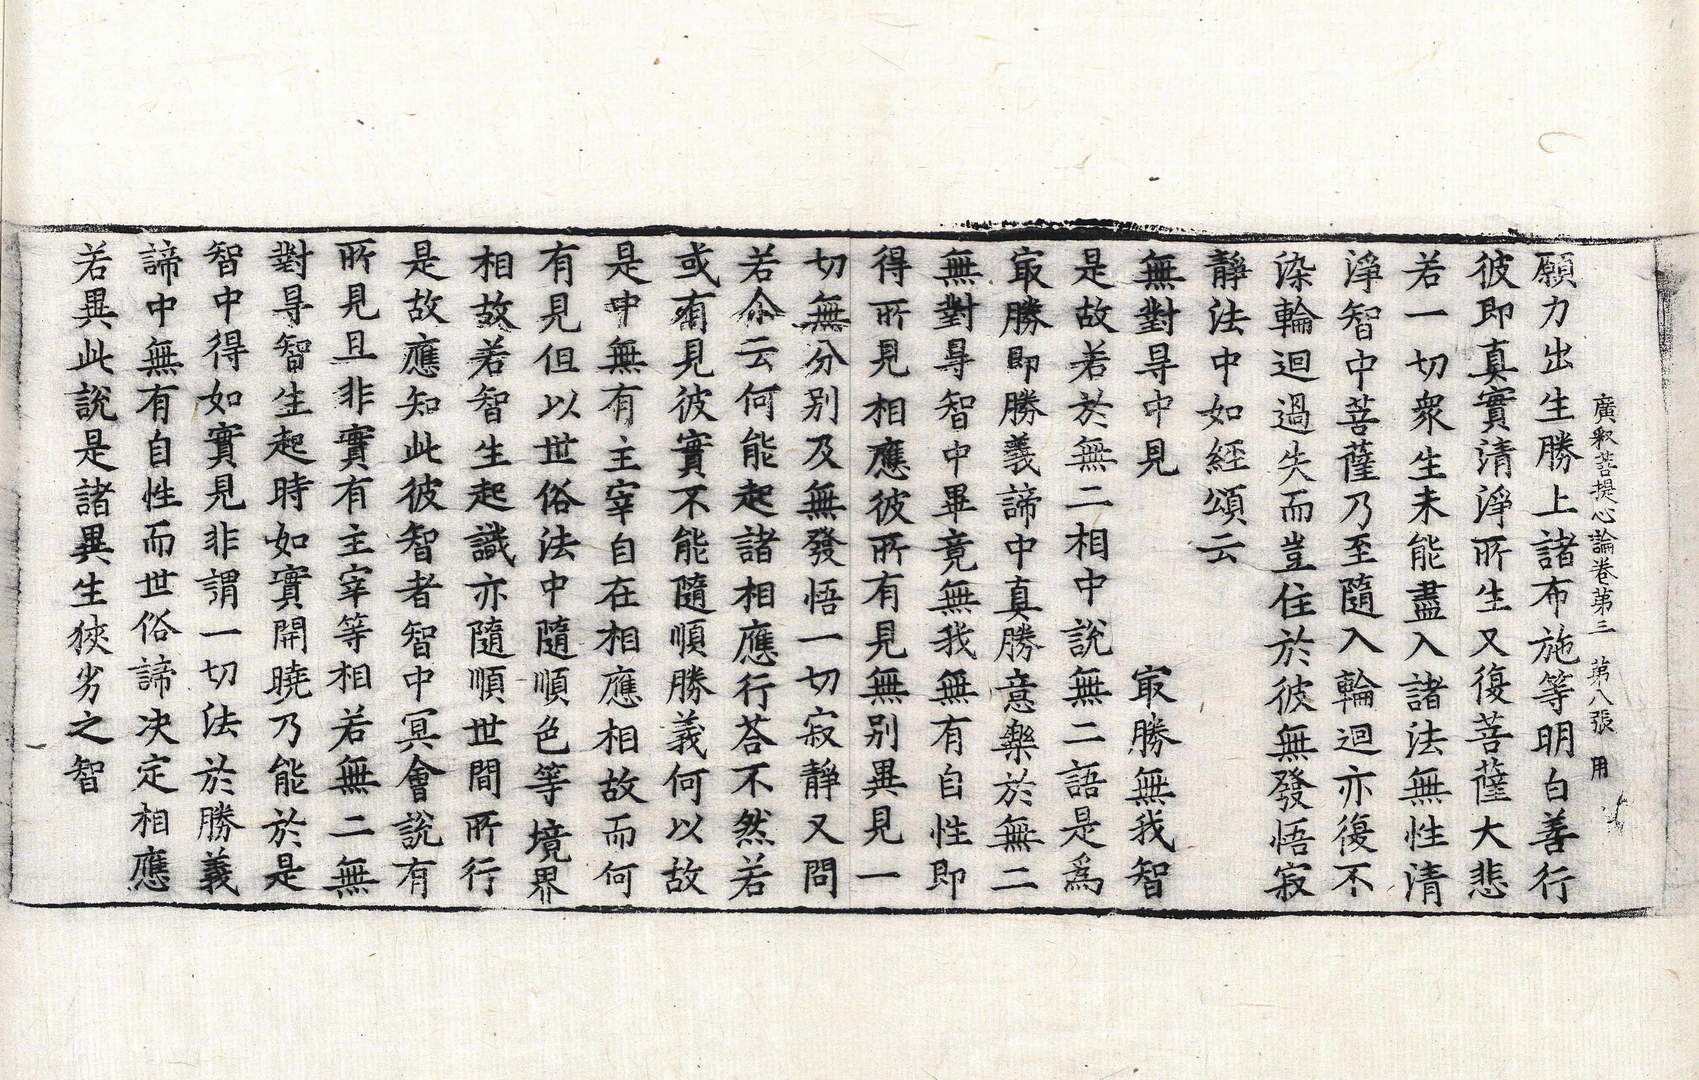 廣釈菩提心論卷第三　第八張　用
願力出生勝上諸布施等明白善行
彼即真實清淨所生又復菩薩大悲
若一切衆生未能盡入諸法無性清
淨智中菩薩乃至隨入輪迴亦復不
染輪迴過失而豈住於彼無發悟寂
靜法中如經頌云
無對㝵中見　　　　㝡勝無我智
是故若於無二相中說無二語是爲
㝡勝即勝義諦中真勝意樂於無二
無對㝵智中畢竟無我無有自性即
得所見相應彼所有見無别異見一
切無分别及無發悟一切寂靜又問
若尒云何能起諸相應行荅不然若
或有見彼實不能隨順勝義何以故
是中無有主宰自在相應相故而何
有見但以世俗法中隨順色等境界
相故若智生起識亦隨順世間所行
是故應知此彼智者智中冥會說有
所見且非實有主宰等相若無二無
對㝵智生起時如實開曉乃能於是
智中得如實見非謂一切法於勝義
諦中無有自性而世俗諦决定相應
若異此說是諸異生狹劣之智